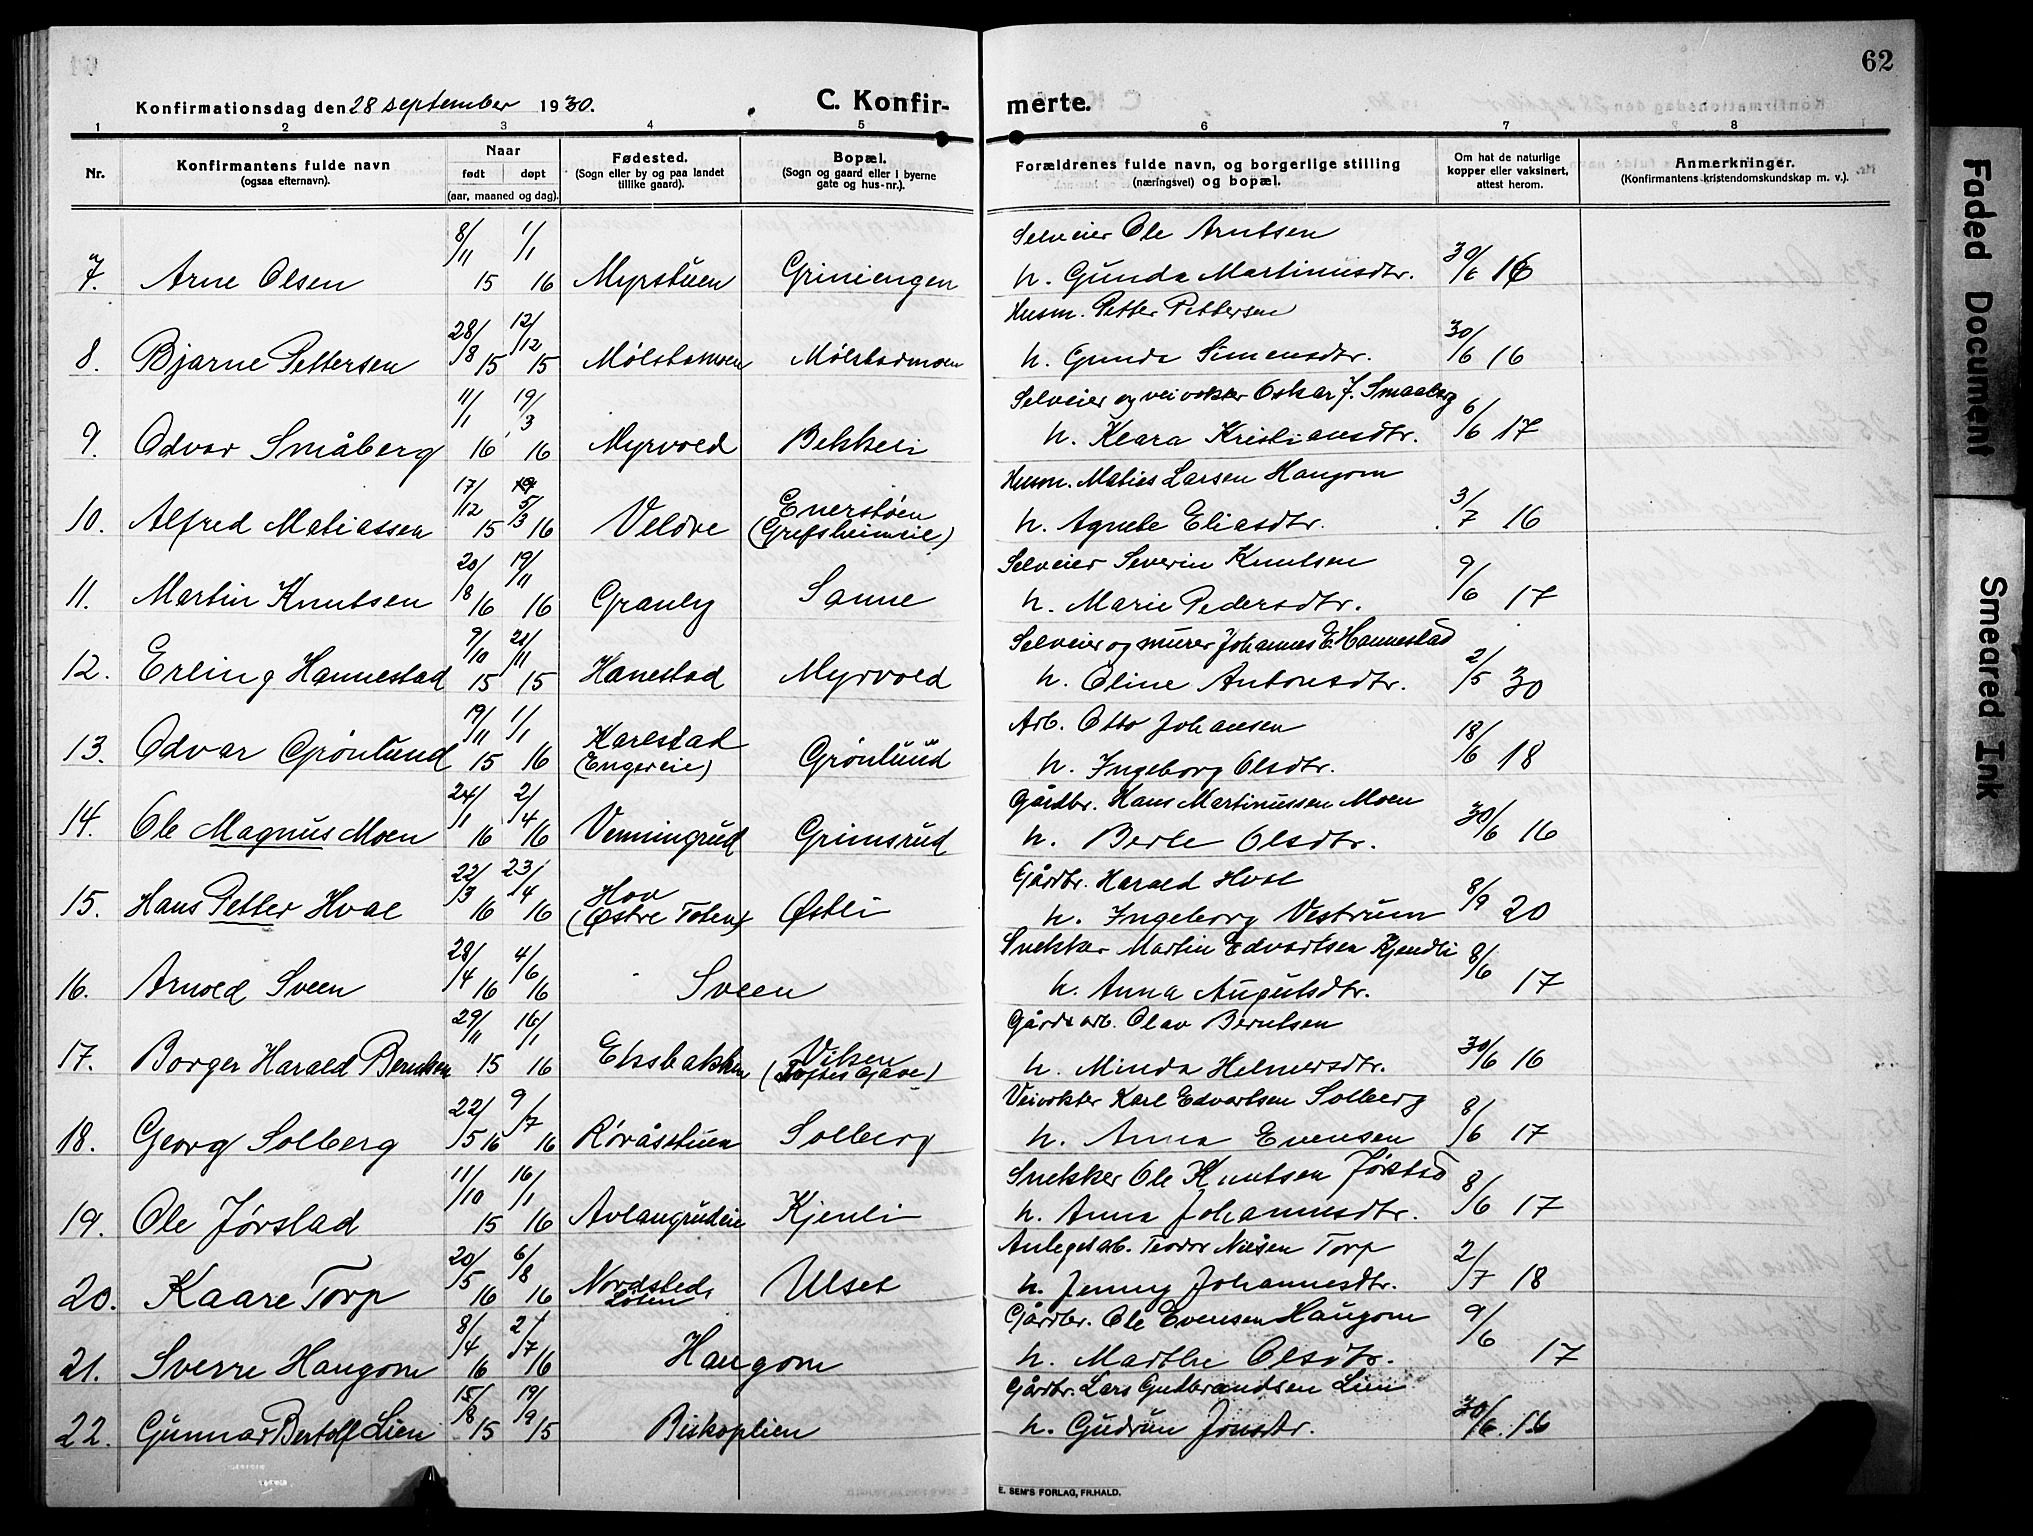 62
Konfirmationsdag den 28 september 1930.
C. Konfir-
merte.
1 2 3 4 5 6 7 8
Nr.
Konfirmantens fulde navn
(ogsaa efternavn).
Naar
født døpt
(aar, maaned og dag).
Fødested.
(Sogn eller by og paa landet
tillike gaard).
Bopæl.
(Sogn og gaard eller i byerne
gate og hus-nr.).
Forældrenes fulde navn, og borgerlige stilling
(næringsvei) og bopæl.
Om hat de naturlige
kopper eller vaksinert,
attest herom.
Anmerkninger.
(Konfirmantens kristendomskundskap m. v.).
8/11 1/1 Selveier Ole Arntsen
7. Arne Olsen 15 16 Myrstuen Griniengen h. Gunda Martinusdtr. 30/6 16
28/8 12/12 Husm. Petter Pettersen
8. Bjarne Pettersen 15 15 Mølstamoen Mølstadmoen h. Gunda Simensdtr. 30/6 16
11/1 19/3 Selveier og veivokter Oskar J. Smaaberg
9. Odvar Småberg 16 16 Myrvold Bekkeli h. Klara Kristiansdtr. 6/6 17
17/12 5/3 Enerstøen Husm. Maties Larsen Haugom
10. Alfred Matiassen 15 16 Veldre (Grefsheimeie) h. Agnete Eliasdtr. 3/7 16
20/8 19/11 Selveier Severin Knutsen
11. Martin Knutsen 16 16 Granly Sanne h. Marie Pedersdtr. 9/6 17
9/10 21/11 Selveier og murer Johannes E. Hannestad
12. Erling Hannestad 15 15 Hanestad Myrvold h. Oline Antonsdtr. 2/5 30
19/11 1/1 Karlstad Arb. Otto Johansen
13. Odvar Grönlund 15 16 (Engereie) Grönlund h. Ingeborg Olsdtr. 18/6 18
24/1 2/4 Gårdbr. Hans Martinussen Moen
14. Ole Magnus Moen 16 16 Venningrud Grimsrud h. Berte Olsdtr. 30/6 16
22/3 23/4 Hov Gårdbr. Harald Hval
15. Hans Petter Hval 16 16 (Østre Toten) Østli h. Ingeborg Vestrum 8/9 20
28/4 4/6 Snekker Martin Edvartsen Kjendli
16. Arnold Sveen 16 16 Sveen h. Anna Augustdtr. 8/6 17
29/11 16/1 Viken Gårdsarb. Olav Berntsen
17. Borger Harald Berntsen 15 16 Eksbakken h. Minda Helmersdtr. 30/6 16
22/5 9/7 Veivokter Karl Edvartsen Solberg
18. Georg Solberg 16 16 Røråsstuen Solberg h. Anna Evensen 8/6 17
11/10 16/1 Snekker Ole Knutsen Jørstad
19. Ole Jørstad 15 16 Avlangrudeie Kjenli h. Anna Johannesdtr. 8/6 17
20/5 6/8 Nordsted, Anlegsarb. Teodor Nilsen Torp
20. Kaare Torp 16 16 Löten Ulset h. Jenny Johannesdtr. 2/7 18
8/4 2/7 Gårdbr. Ole Evensen Haugom
21. Sverre Haugom 16 16 Haugom h. Marthe Olsdtr. 9/6 17
15/8 19/9 Gårdbr. Lars Gudbrandsen Lien
22. Gunnar Bertolf Lien 15 15 Biskoplien h. Gudrun Jonsdtr. 30/6 16
E. SEM'S FORLAG, FR.HALD.
Faded Document
Smeared Ink